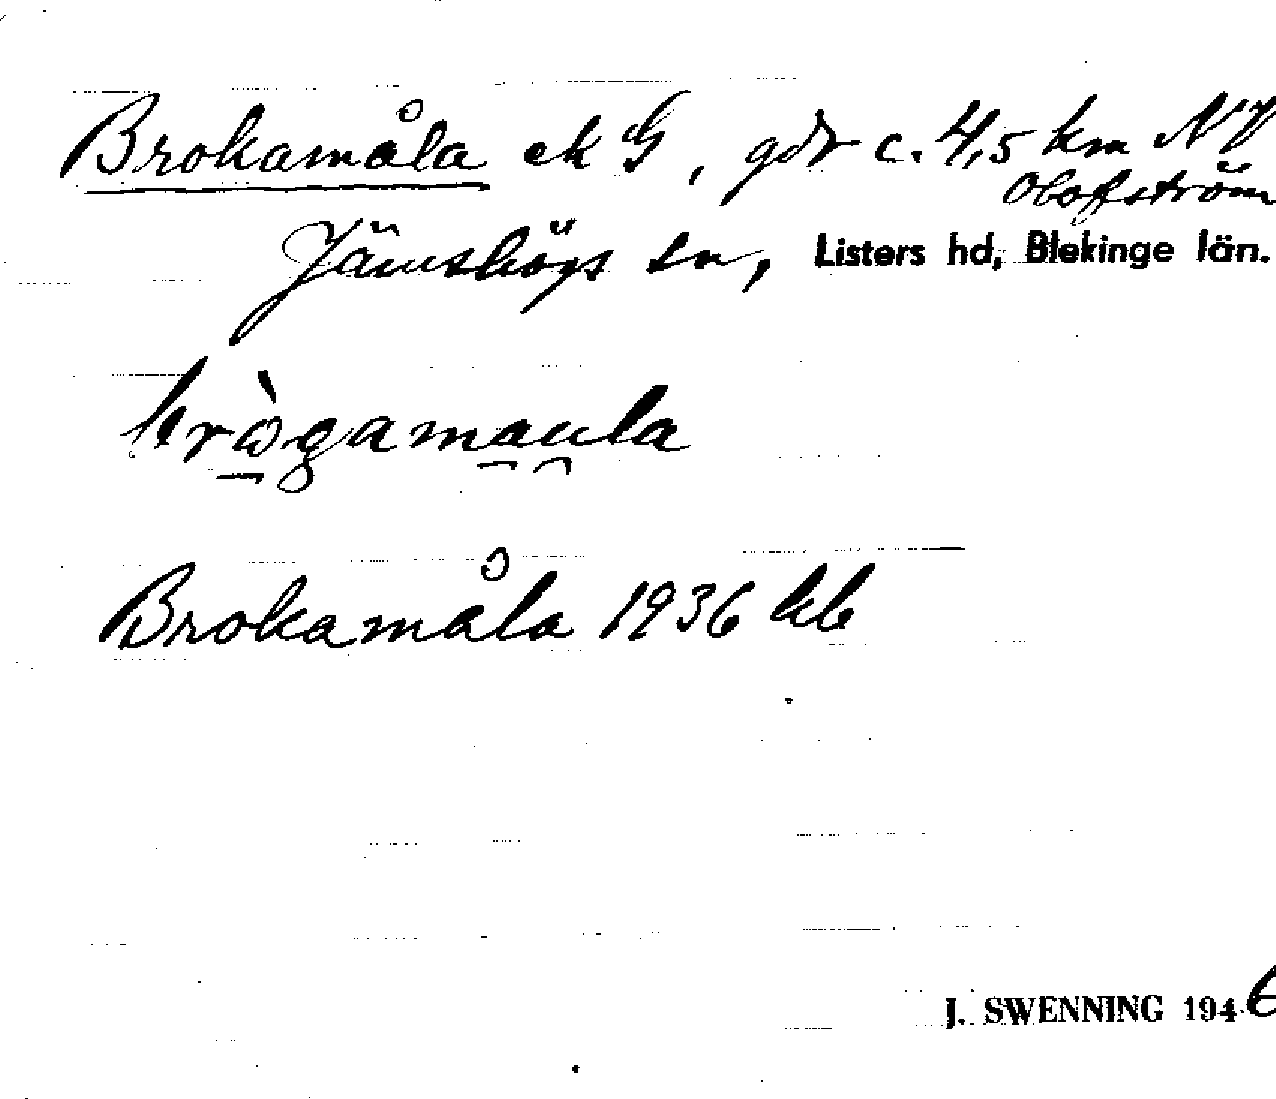 Brokamåla ek G, gdr c. 4,5 km NV
Olofström
Jämshögs sn, Listers hd, Blekinge län.
brògamaula
Brokamåla 1936 kb
J. SWENNING 1946